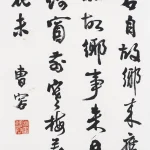 君自故鄉來應
知故鄉事來日
綺窗前寒梅著
花未
曹